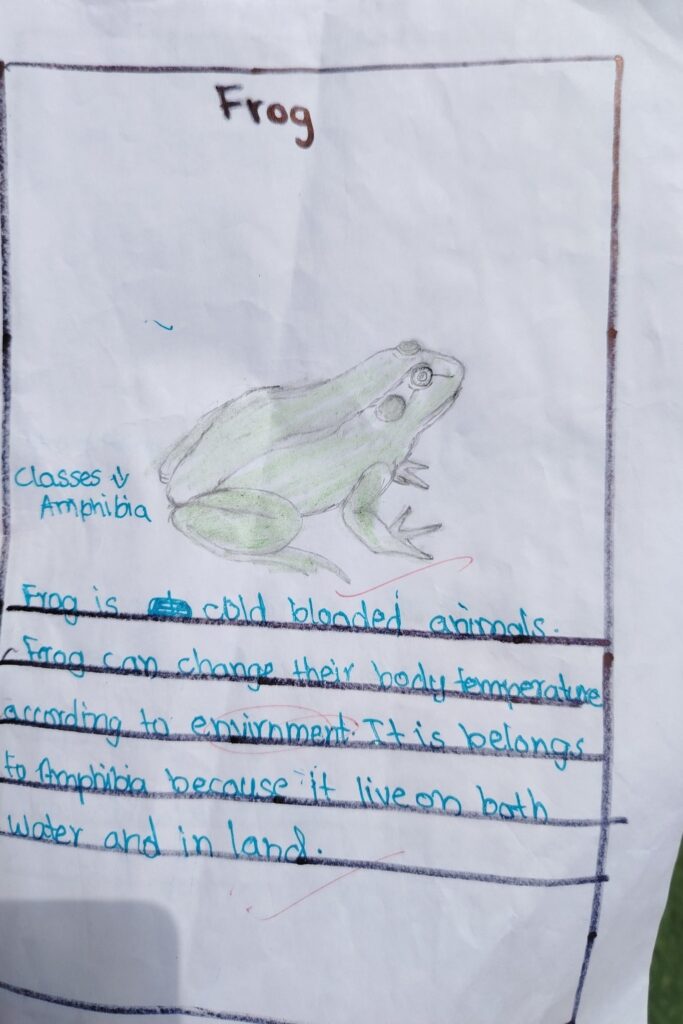 Frog
Classes ↓
Amphibia
Frog is cold blooded animals.
Frog can change their body temperature
according to envirnment. It is belongs
to Amphibia because it live on both
water and in land.